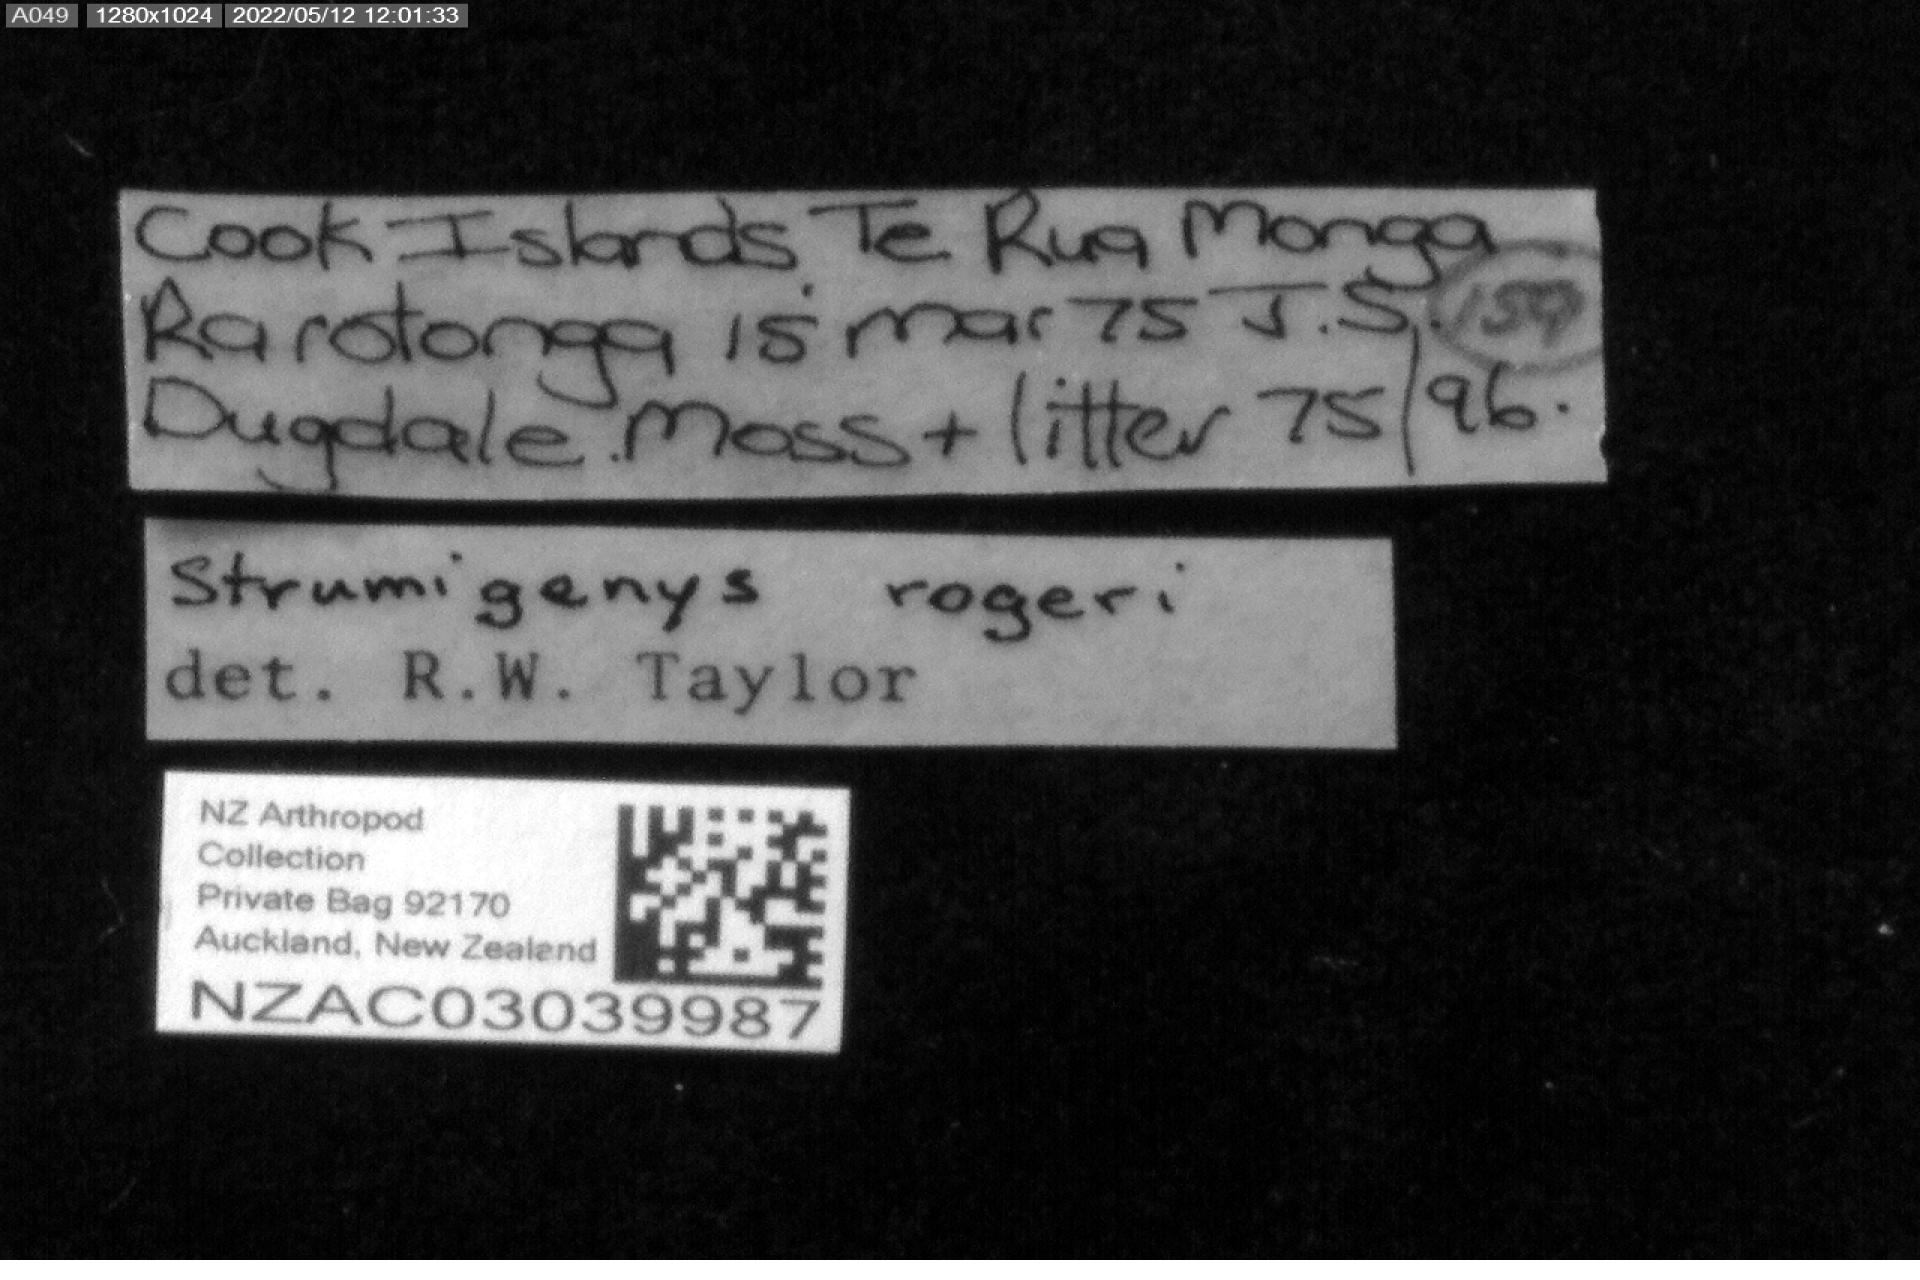 A049 1280x1024 2022/05/12 12:01:33
Cook Islands Te Rua Monga
Rarotonga 15 mar 75 J.S. 159
Dugdale. Moss + litter 75/96.
Strumigenys rogeri
det. R.W. Taylor
NZ Arthropod
Collection
Private Bag 92170
Auckland, New Zealand
NZAC03039987